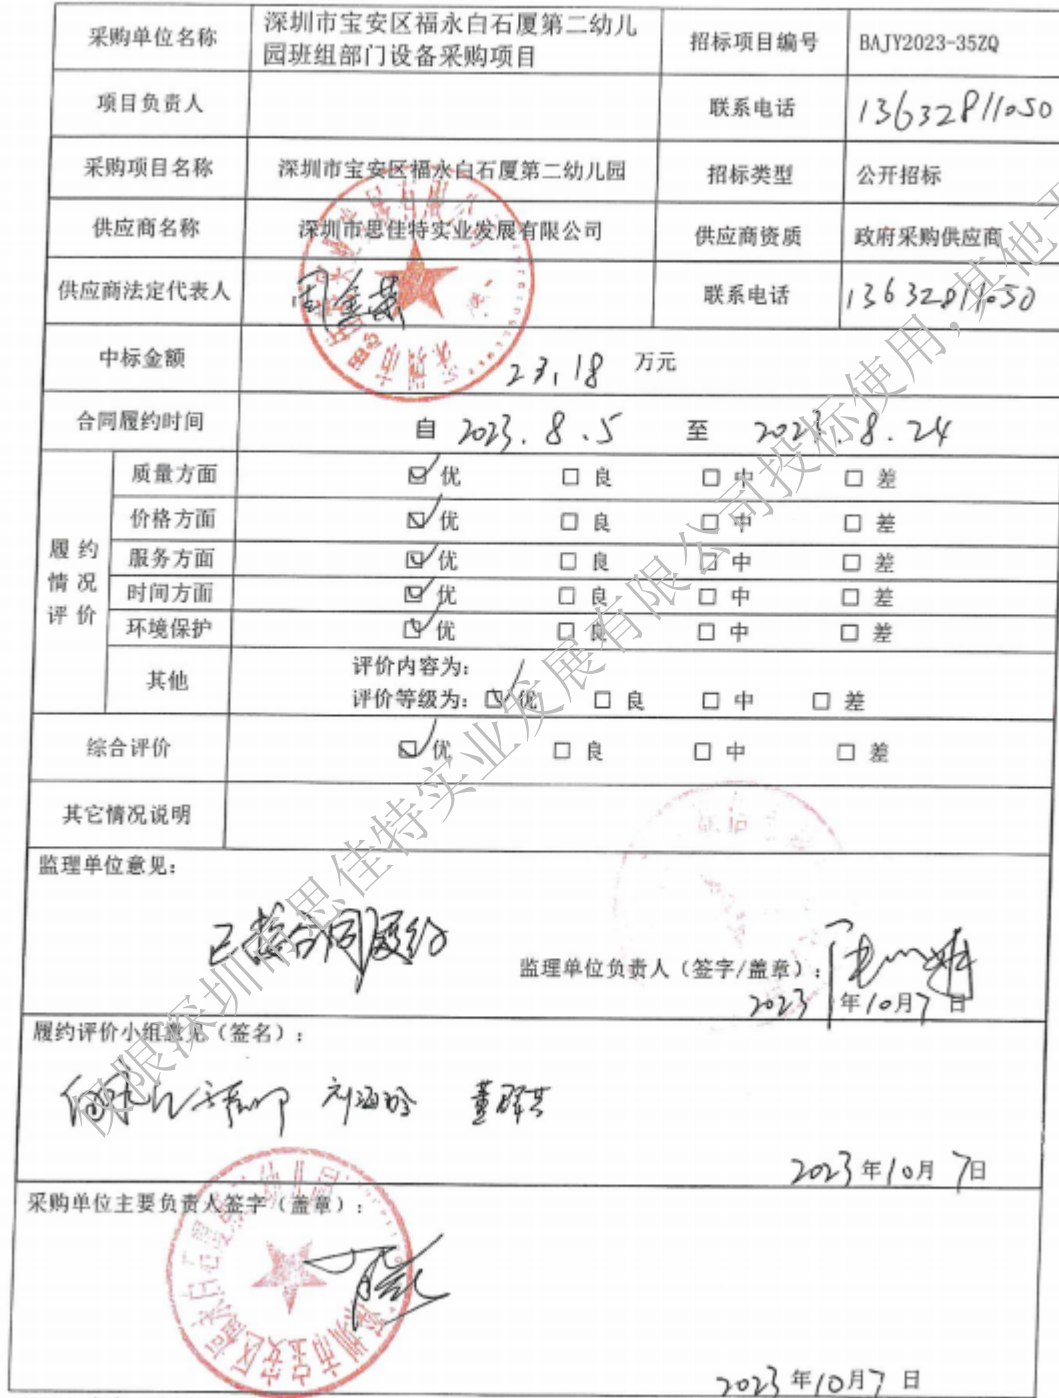 采购单位名称 深圳市宝安区福永白石厦第二幼儿园班组部门设备采购项目 招标项目编号 BAJY2023-35ZQ
项目负责人 联系电话 13632811050
采购项目名称 深圳市宝安区福永白石厦第二幼儿园 招标类型 公开招标
供应商名称 深圳市思佳特实业发展有限公司 供应商资质 政府采购供应商
供应商法定代表人 联系电话 13632811050
中标金额 23.18 万元
合同履约时间 自 2023.8.5 至 2023.8.24
履约情况评价
质量方面 ☑优 □良 □中 □差
价格方面 ☑优 □良 □中 □差
服务方面 ☑优 □良 □中 □差
时间方面 ☑优 □良 □中 □差
环境保护 ☑优 □良 □中 □差
其他 评价内容为：
评价等级为：☑优 □良 □中 □差
综合评价 ☑优 □良 □中 □差
其它情况说明
监理单位意见：
已按合同履约
监理单位负责人（签字/盖章）：
2023年10月7日
履约评价小组意见（签名）：
刘海玲
2023年10月7日
采购单位主要负责人签字（盖章）：
2023年10月7日
仅限深圳市思佳特实业发展有限公司投标使用，其他